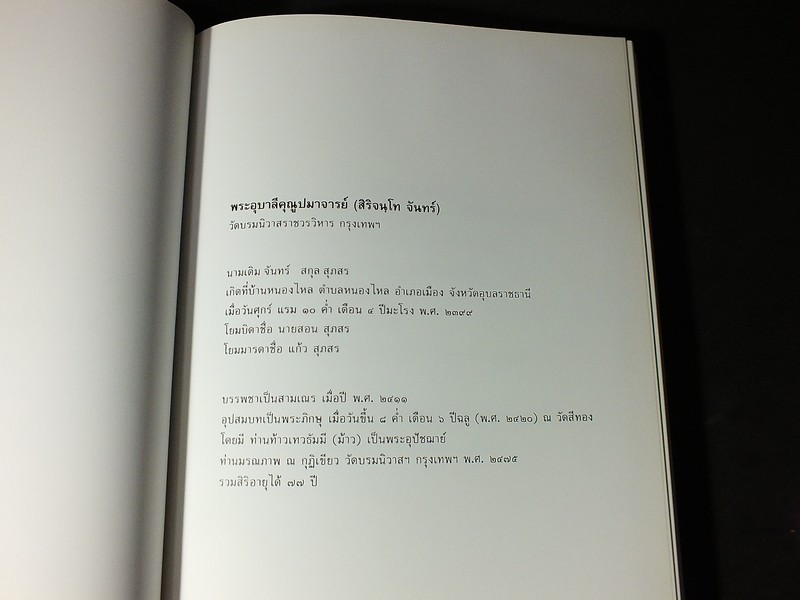 พระอุบาลีคุณูปมาจารย์ (สิริจนฺโท จันทร์)
วัดบรมนิวาสราชวรวิหาร กรุงเทพฯ
นามเดิม จันทร์ สกุล สุภสร
เกิดที่บ้านหนองไหล ตำบลหนองไหล อำเภอเมือง จังหวัดอุบลราชธานี
เมื่อวันศุกร์ แรม ๑๐ ค่ำ เดือน ๔ ปีมะโรง พ.ศ. ๒๓๙๙
โยมบิดาชื่อ นายสอน สุภสร
โยมมารดาชื่อ แก้ว สุภสร
บรรพชาเป็นสามเณร เมื่อปี พ.ศ. ๒๔๑๑
อุปสมบทเป็นพระภิกษุ เมื่อวันขึ้น ๘ ค่ำ เดือน ๖ ปีฉลู (พ.ศ. ๒๔๒๐) ณ วัดสีทอง
โดยมี ท่านท้าวเทวธัมมี (ม้าว) เป็นพระอุปัชฌาย์
ท่านมรณภาพ ณ กุฏิเขียว วัดบรมนิวาสฯ กรุงเทพฯ พ.ศ. ๒๔๗๕
รวมสิริอายุได้ ๗๗ ปี